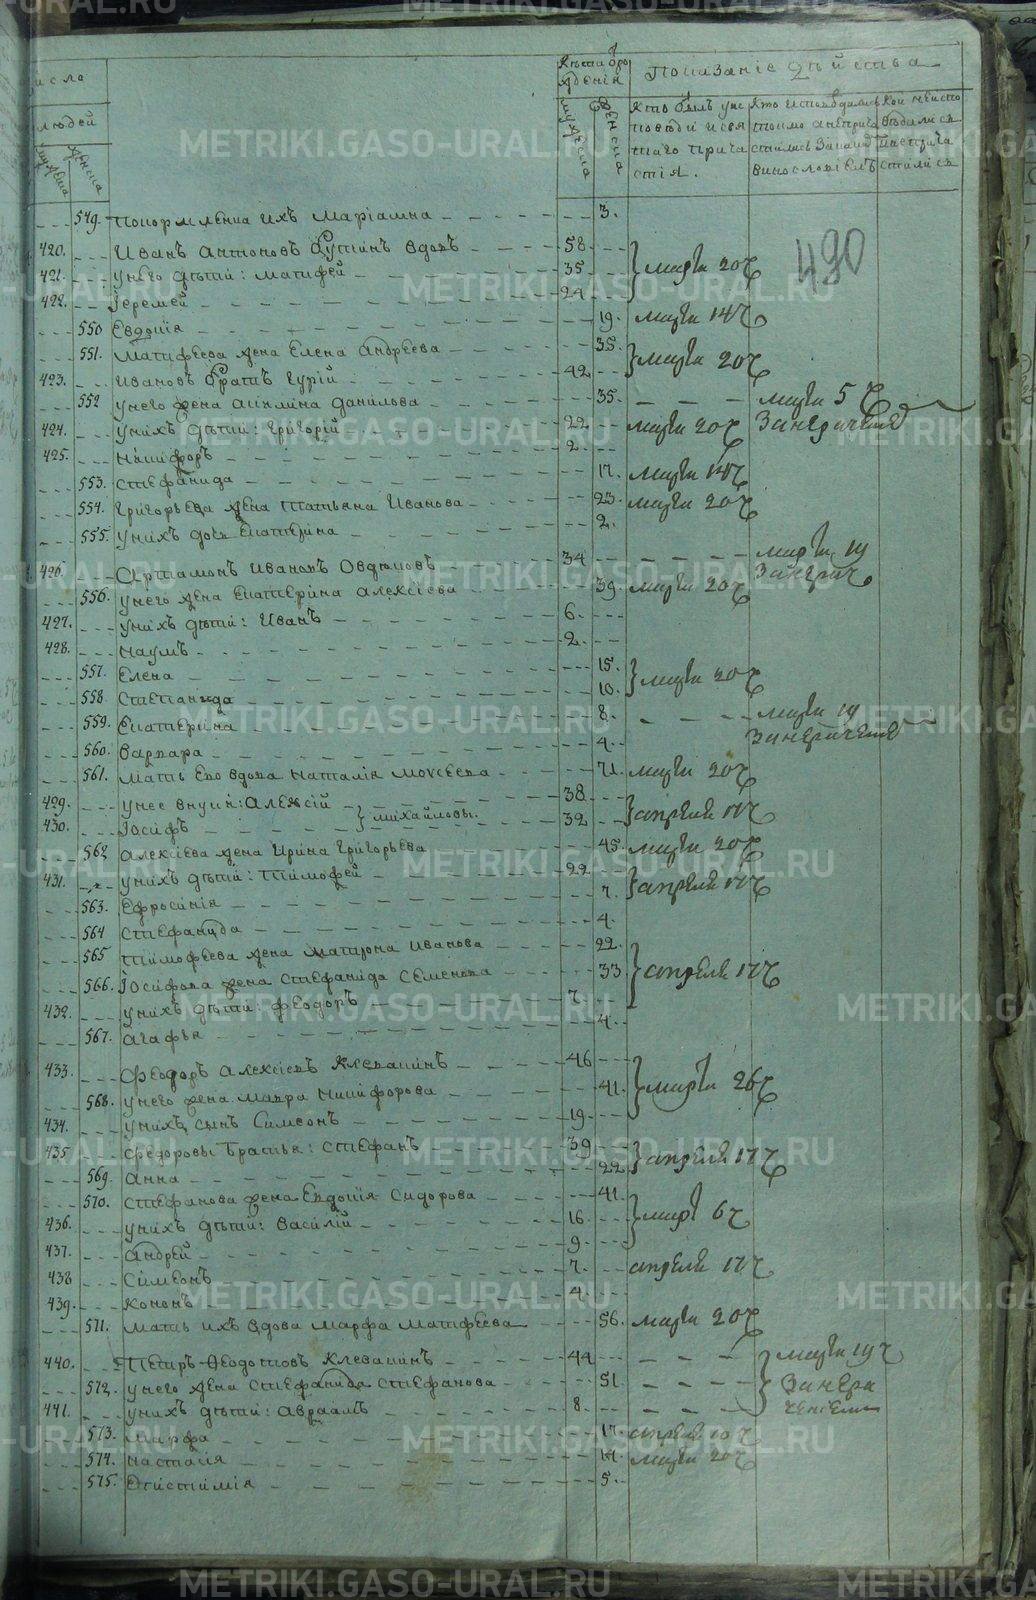 исла
людей
мужеска
женска
мужеска
женска
Показаніе дѣйства
Кто былъ у ис
повѣди и свя
таго прича
стія.
винословіемъ
490
549. Покормленка ихъ Маріамна 3.
420. Иванъ Антоновъ вдовъ 58
421. У него дѣти: Матфей 35
422. Іеремей 24
марта 20 ч
550 Евдокія 19. марта 14 ч
551. Матфеева жена Елена Андреева 35.
423. Ивановъ братъ Гурій 42
марта 20 ч
552 У него жена Акилина Данилова 35. марта 5 ч
424. У нихъ дѣти: Григорій 22 марта 20 ч
425. Никифоръ 2.
553. Стефанида 17. марта
554. Григорьева жена Татьяна Иванова 23. марта 20 ч
555. У нихъ дочь Екатерина 2.
426. Артамонъ Ивановъ Овдюковъ 34 марта 19
556. У него жена Екатерина Алексіева 39. марта 20 ч
427. У нихъ дѣти: Иванъ 6.
428. Наумъ 2.
557. Елена 15.
558. Степанида 10.
марта 20 ч
559. Екатерина 8. марта 19
560. Варвара 4.
561. Мать Его вдова Наталія Моисеева 71. марта 20 ч
429. У нее внуки: Алексій 38
430. Іосифъ 32
Михайловы.
апреля 17 ч
562 Алексіева жена Ирина Григорьева 45. марта 20 ч
431. У нихъ дѣти: Тимофей 22
563. Ефросинія 7.
апреля 17 ч
564 Стефанида 4.
565 Тимофеева жена Матрона Иванова 22.
566. Іосифова жена Стефанида Семенова 33
432. У нихъ дѣти: Феодоръ 7
567. Агафья 4.
апреля 17 ч
433. Феодоръ Алексіевъ Клевакинъ 46
568. У него жена Мавра Никифорова 41.
434. У нихъ сынъ Симеонъ 19.
марта 26 ч
435 Федоровы братья: Стефанъ 39
569. Анна 22
апреля 17 ч
570. Стефанова жена Евдокія Сидорова 41.
436. У нихъ дѣти: Василій 16.
437. Андрей 9
март 6 ч
438 Симеонъ 7. апреля 17 ч
439. Кононъ 4.
571. Мать ихъ вдова Марфа Матфеева 56. марта 20 ч
440. Петръ Феодотовъ Клевакинъ 44
572. У него жена Стефанида Стефанова 51.
441. У нихъ дѣти: Авраамъ 8
марта 19 ч
573. Марфа 17
574. Настасія 14. марта 20 ч
575. Епистимія 5.
METRIKI.GASO-URAL.RU